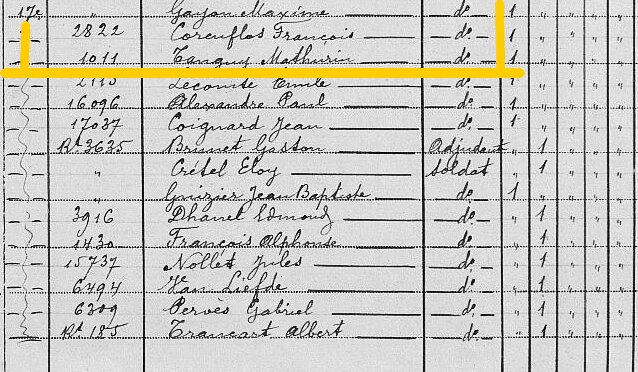 17e " Gayon Maxime do 1 " " " "
" 2822 Corenflos François do 1 " " " "
" 1011 Tanguy Mathurin do 1 " " " "
2113 Lecomte Emile do 1 " " " "
16096 Alexandre Paul do 1 " " " "
17037 Coignard Jean do 1 " " " "
Rt 3635 Brunet Gaston Adjudant " 1 " " "
" Crétel Eloy Soldat " 1 " " "
" Jean Baptiste do 1 " " " "
3916 Dhanel Edmond do " 1 " " "
1430 François Alphonse do " 1 " " "
15737 Nollet Jules do " 1 " " "
6494 Van Liefde do " 1 " " "
6309 Pervès Gabriel do " 1 " " "
Rt 185 Trancart Albert do " 1 " " "